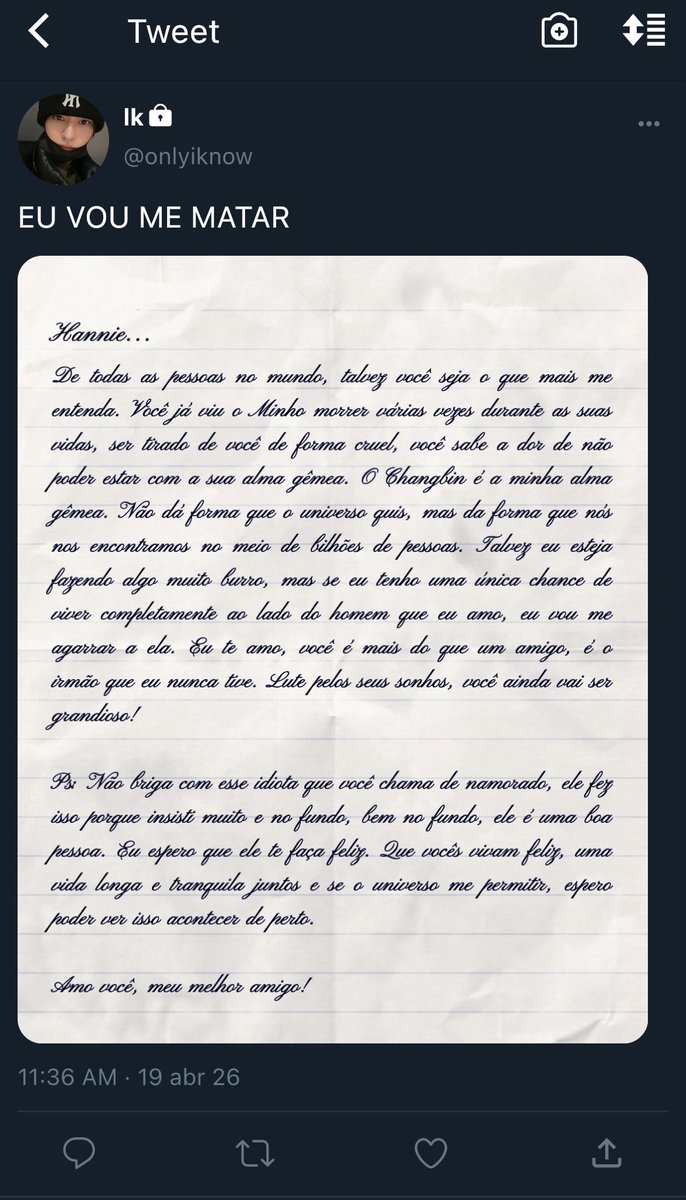 Tweet
lk
@onlyiknow
EU VOU ME MATAR
Hannie...
De todas as pessoas no mundo, talvez você seja o que mais me
entenda. Você já viu o Minho morrer várias vezes durante as suas
vidas, ser tirado de você de forma cruel, você sabe a dor de não
poder estar com a sua alma gêmea. O Changbin é a minha alma
gêmea. Não dá forma que o universo quis, mas da forma que nós
nos encontramos no meio de bilhões de pessoas. Talvez eu esteja
fazendo algo muito burro, mas se eu tenho uma única chance de
viver completamente ao lado do homem que eu amo, eu vou me
agarrar a ela. Eu te amo, você é mais do que um amigo, é o
irmão que eu nunca tive. Lute pelos seus sonhos, você ainda vai ser
grandioso!
Ps: Não briga com esse idiota que você chama de namorado, ele fez
isso porque insisti muito e no fundo, bem no fundo, ele é uma boa
pessoa. Eu espero que ele te faça feliz. Que vocês vivam feliz, uma
vida longa e tranquila juntos e se o universo me permitir, espero
poder ver isso acontecer de perto.
Amo você, meu melhor amigo!
11:36 AM · 19 abr 26